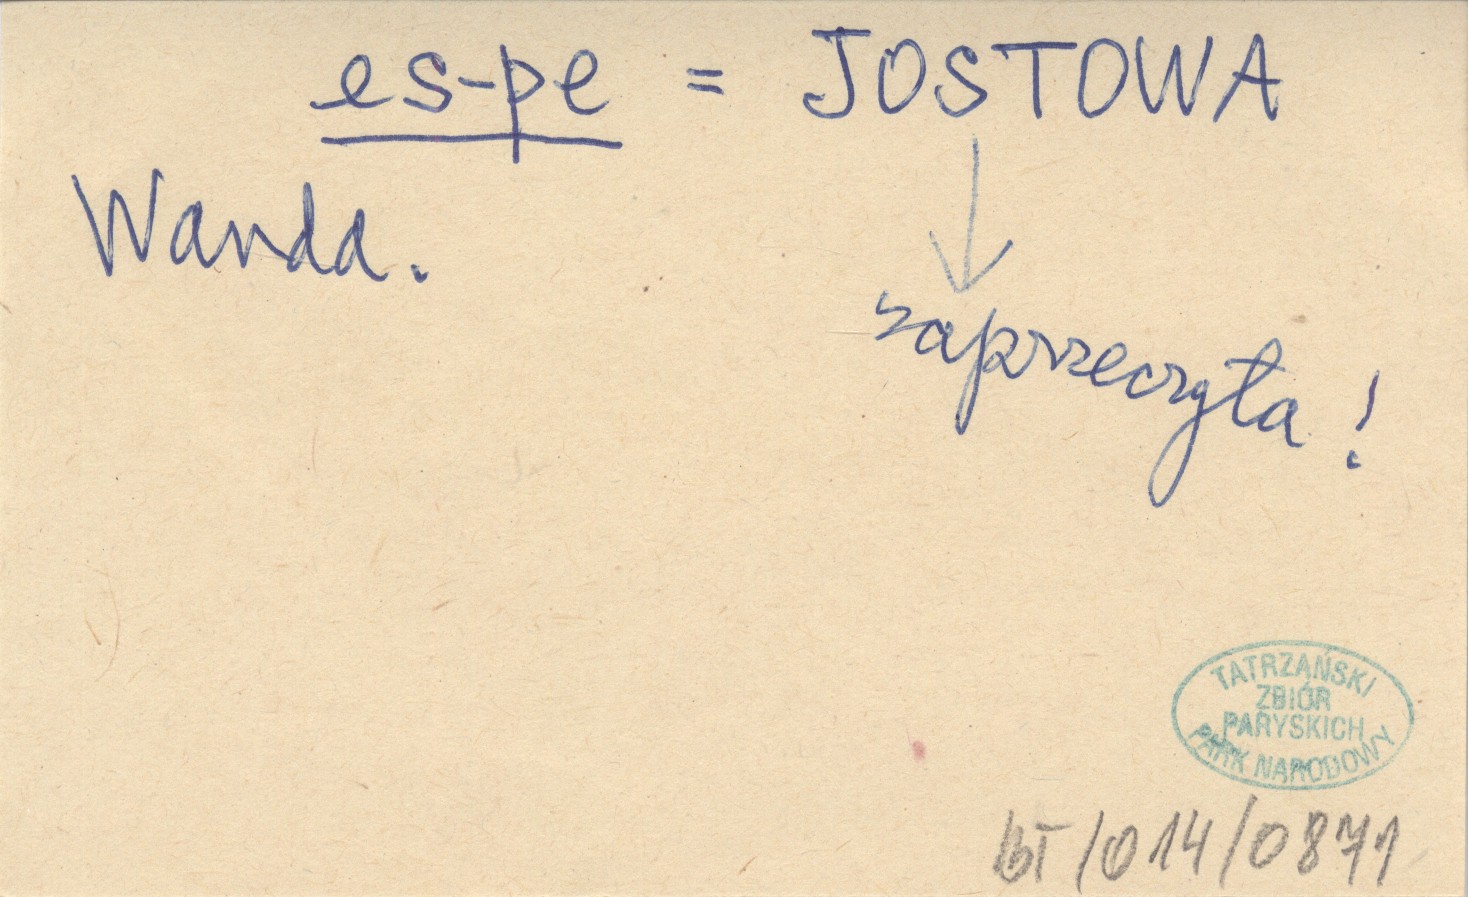 es-pe = JOSTOWA
Wanda.
zaprzeczyła!
TATRZAŃSKI
ZBIÓR
PARYSKICH
PARK NARODOWY
/014/0871